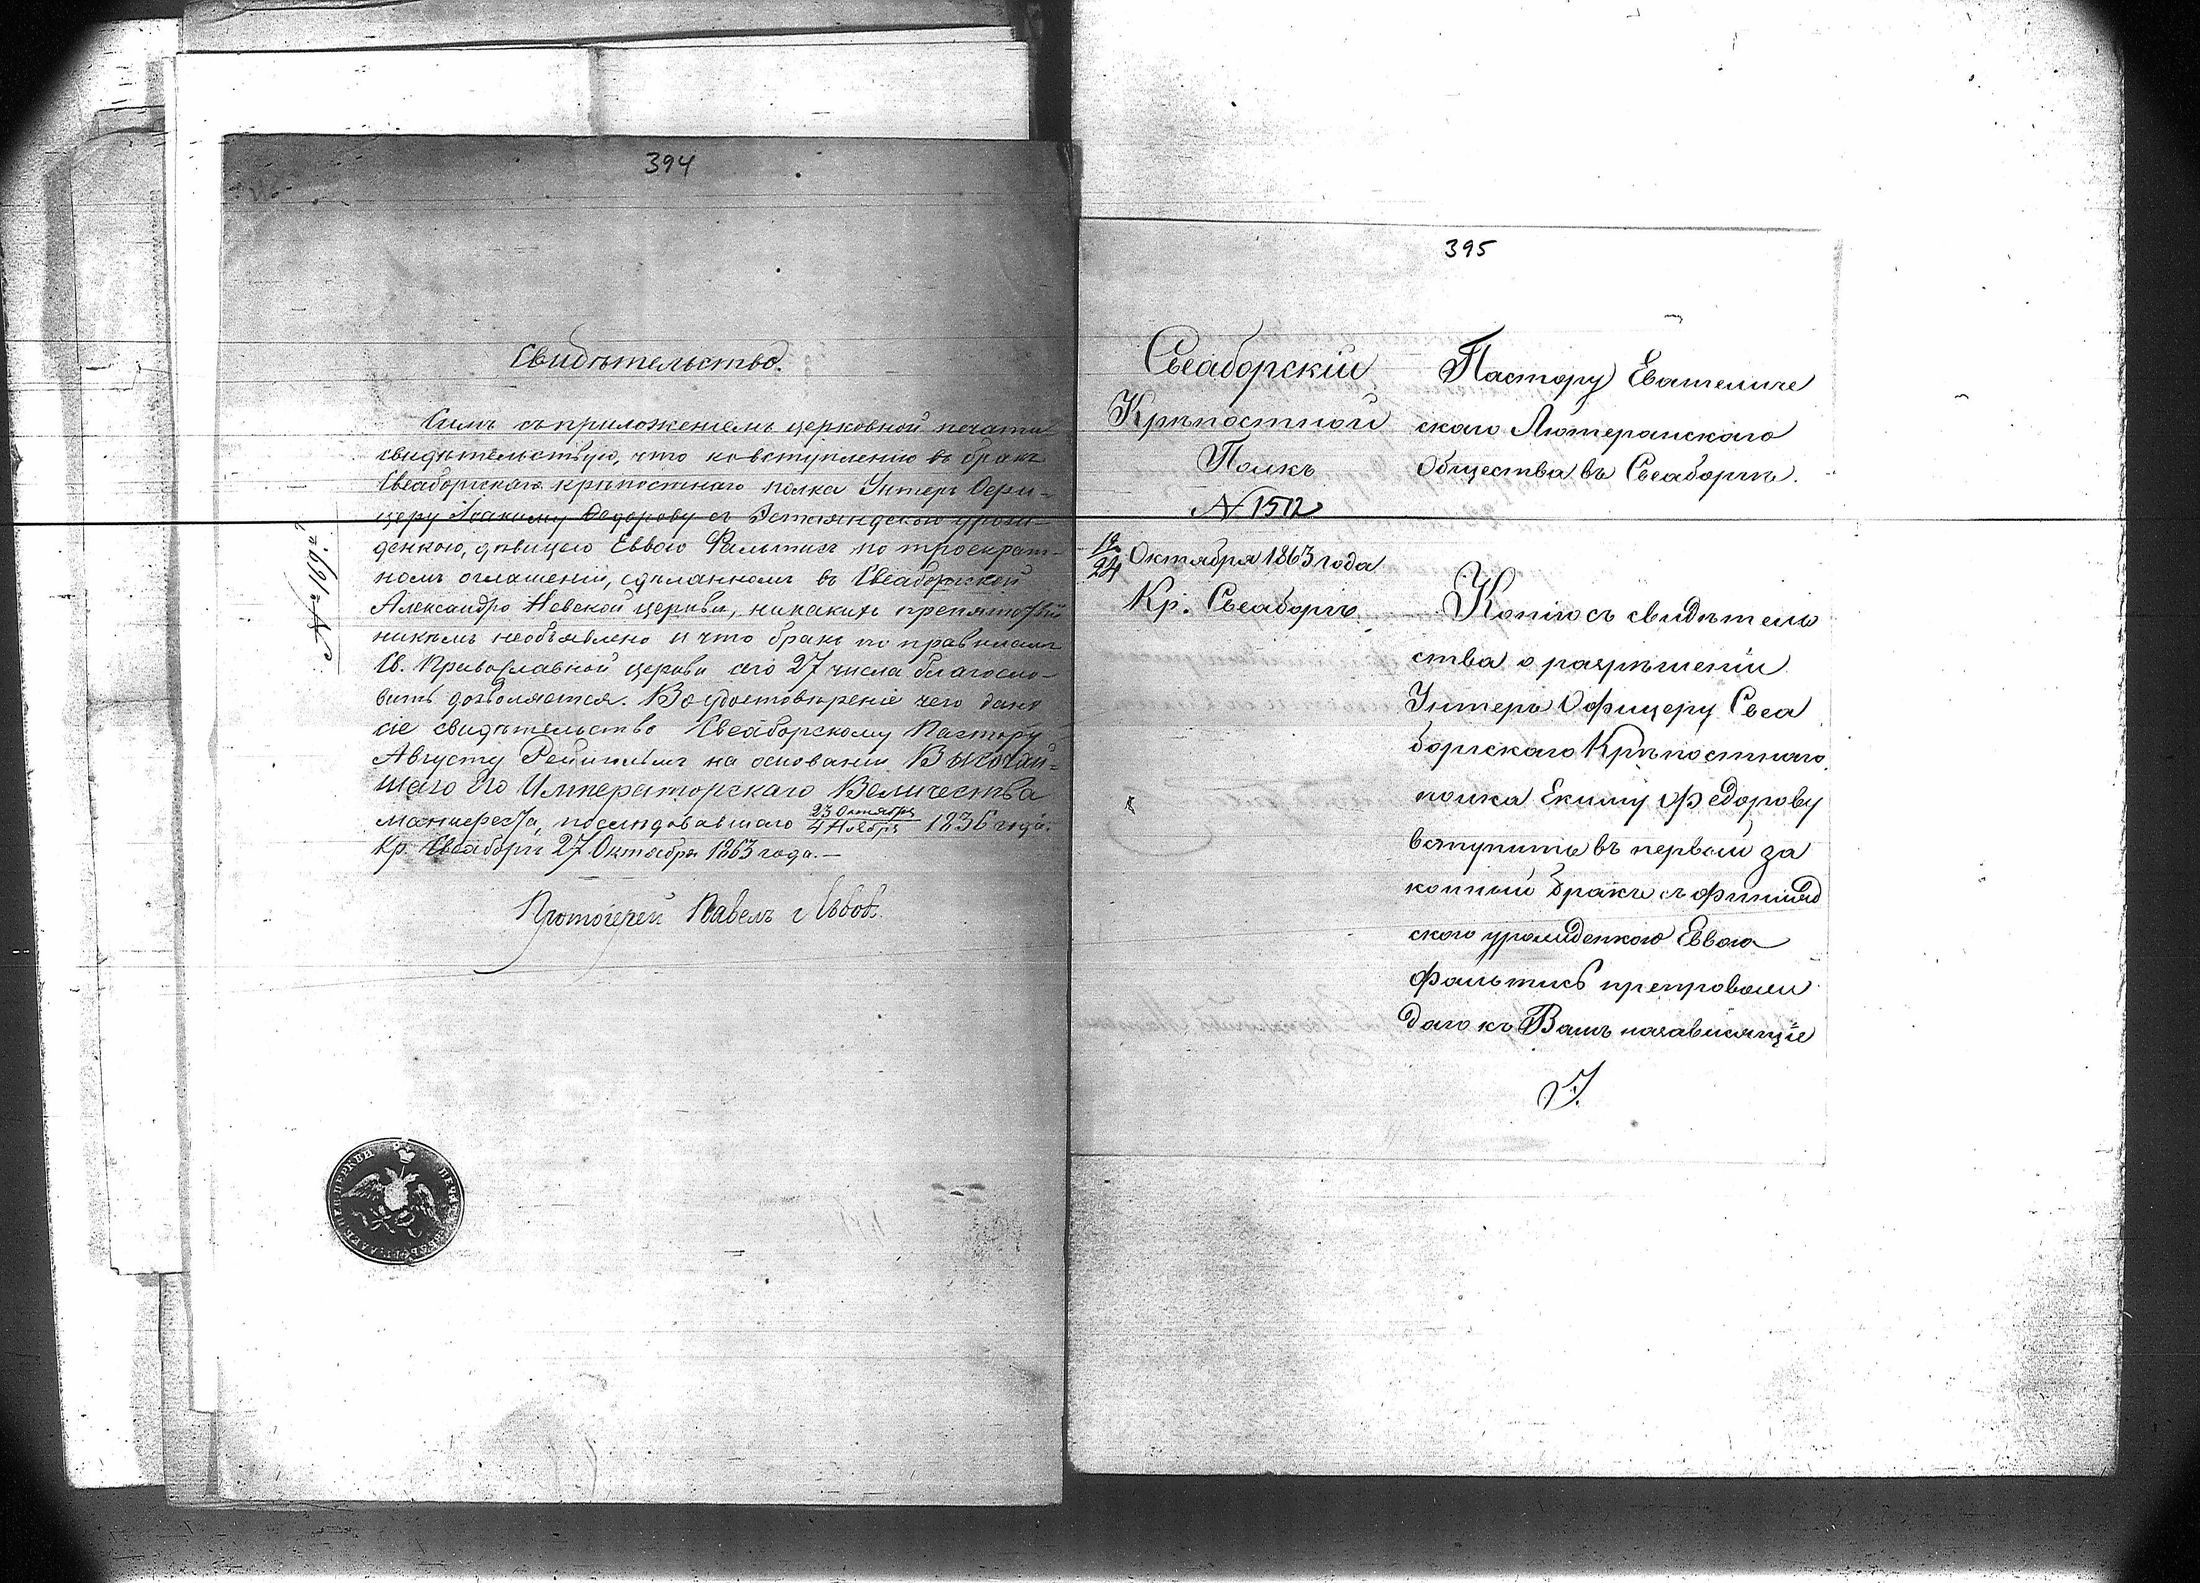 394
Свидѣтельство.
Симъ съ приложеніемъ церковной печати
свидѣтельствую, что ко вступленію въ бракъ
Свеаборгскаго крѣпостнаго полка Унтеръ Офи-
церу Іоакиму Федорову съ Эстляндскою урож-
денкою, дѣвицею Еввою Фальтисъ по троекрат-
номъ оглашеніи, сдѣланномъ въ Свеаборгской
Александро Невской церкви, никакихъ препятствій
никѣмъ необъявлено и что бракъ по правиламъ
Св. Православной церкви сего 27 числа благосло-
вить дозволяется. Въ удостовѣреніе чего дано
сіе свидѣтельство Свеаборгскому Пастору
Августу на основаніи Высочай-
шаго Его Императорскаго Величества
манифеста, послѣдовавшаго 23 Октября/4 Ноября 1836 года.
Кр. Свеаборгъ 27 Октября 1863 года.—
Протоіерей Павелъ Львовъ.
395
Свеаборгскій
Крѣпостной
Полкъ
N 1512
12/24 Октября 1863 года
Кр. Свеаборгъ.
Пастору Евангеличе
скаго Лютеранскаго
Общества въ Свеаборгѣ.
Копію съ свидѣтель
ства о разрѣшеніи
Унтеръ Офицеру Свеа
боргскаго Крѣпостнаго
полка Екиму Федорову
вступить въ первый за
конный бракъ съ финлянд
скою урожденкою Еввою
Фальтисъ препровож
даю къ Вамъ на зависящіе